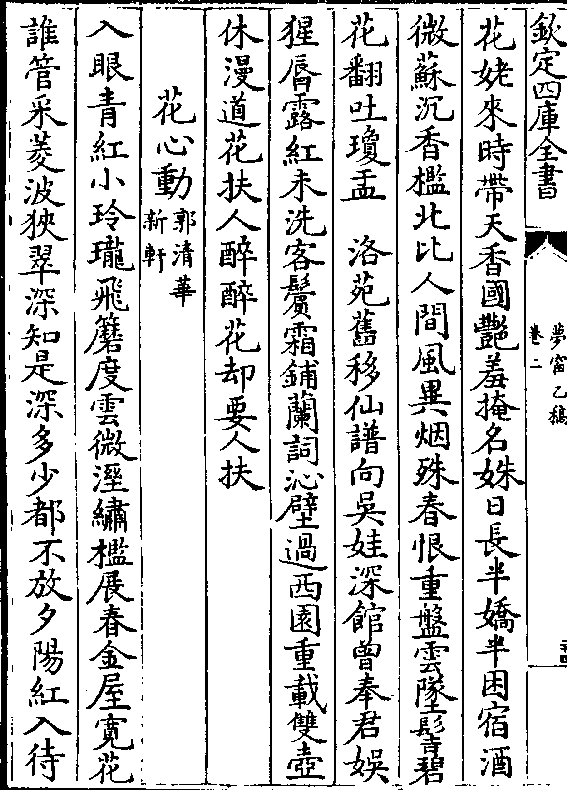 欽定四庫全書
夢窗乙稿
卷二
花姥來時帶天香國艷羞掩名姝日長半嬌半困宿酒
微蘇沉香檻北比人間風異烟殊春恨重盤雲墜髻碧
花翻吐瓊盂　洛苑舊移仙譜向吳娃深館曾奉君娛
猩唇露紅未洗客鬢霜鋪蘭詞沁壁過西園重載雙壺
休漫道花扶人醉醉花却要人扶
花心動郭清華新軒
入眼青紅小玲瓏飛簷度雲微溼繡檻展春金屋寬花
誰管采菱波狹翠深知是深多少都不放夕陽紅入待